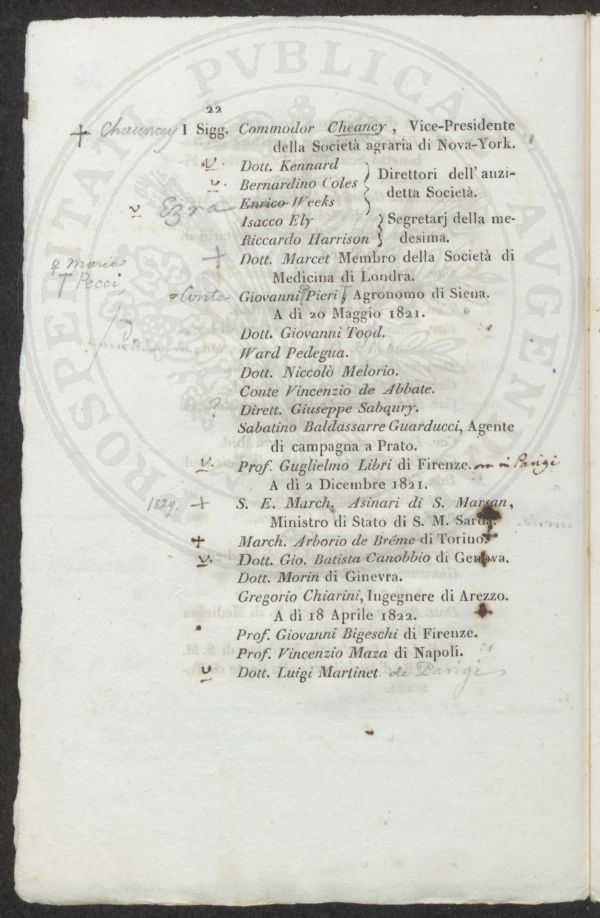 PROSPERITATI PVBLICAE AVGENDAE
22
+ Chauncey I Sigg. Commodor Cheancy, Vice-Presidente
della Società agraria di Nova-York.
v. Dott. Kennard
v. Bernardino Coles
Direttori dell' anzi-
detta Società.
v Ezra Enrico Weeks
Isacco Ely
Riccardo Harrison
Segretarj della me-
desima.
+ Dott. Marcet Membro della Società di
Medicina di Londra.
Maria
Pecci
Conte Giovanni Pieri, Agronomo di Siena.
A dì 20 Maggio 1821.
Dott. Giovanni Tood.
Ward Pedegua.
Dott. Niccolò Melorio.
Conte Vincenzio de Abbate.
? Dirett. Giuseppe Sabqury.
Sabatino Baldassarre Guarducci, Agente
di campagna a Prato.
v. Prof. Guglielmo Libri di Firenze. ora in Parigi
A dì 2 Dicembre 1821.
1829. + S. E. March. Asinari di S. Marsan,
Ministro di Stato di S. M. Sarda.
+ March. Arborio de Bréme di Torino.
v. Dott. Gio. Batista Canobbio di Genova.
Dott. Morin di Ginevra.
Gregorio Chiarini, Ingegnere di Arezzo.
A dì 18 Aprile 1822.
Prof. Giovanni Bigeschi di Firenze.
Prof. Vincenzio Maza di Napoli.
v Dott. Luigi Martinet di Parigi